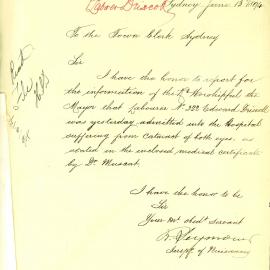 Labor Driscoll
Sydney June 13th
To the Town Clerk Sydney
Sir
I have the honor to report for
the information of the Rt. Worshipful the
Mayor that Labourer No. 322 Edward Driscoll
was yesterday admitted into the Hospital
suffering from cataract of both eyes. as
stated in the enclosed medical certificate
by Dr. Muscat.
I have the honor to be
Sir
Your Mo. obdt. servant
R. Seymour
Inspr. of Nuisances
File